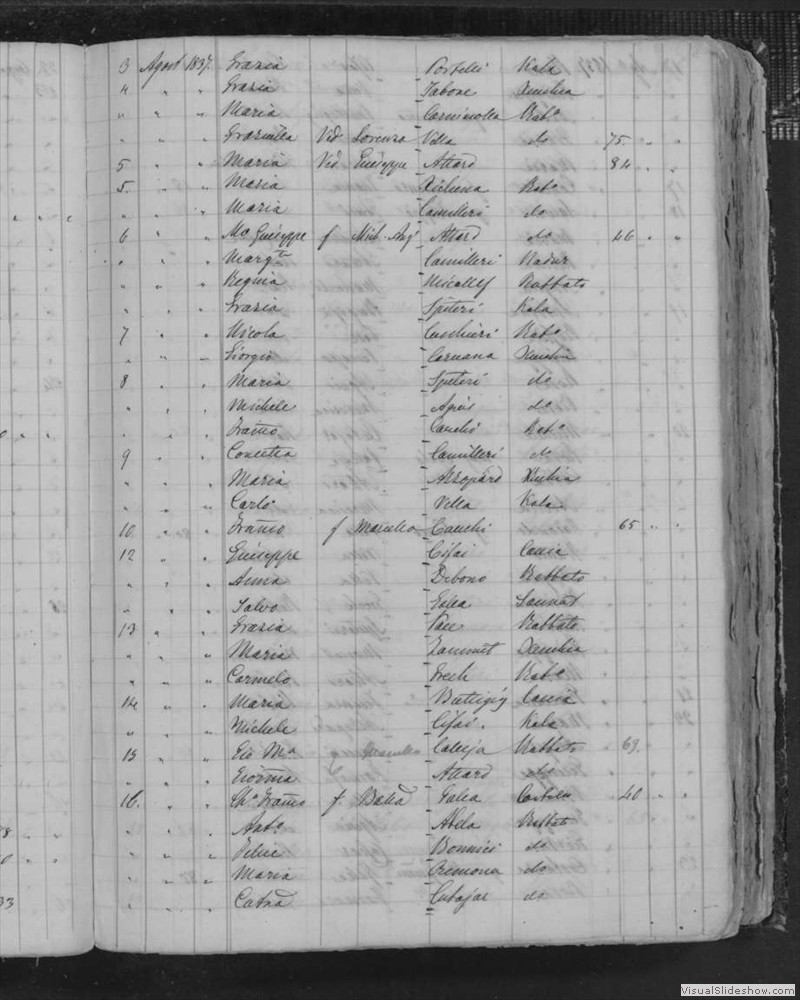 3 Agost 1837. Grazia Portelli Kala
4 " " Grazia Tabone Xeuchia
" " " Maria Carminella Rabo
" " " Graziulla Vid Lorenzo Villa do 75 " "
5 " " Maria Vid Guiseppe Attard 84 " "
5. " " Maria Xicluna Rabo
" " " Maria Camilleri do
6 " " Ma Guiseppe f Mich. Ang. Attard do 46 " "
" " " Margta Camilleri Nadur
" " " Regina Micallef Rabbato
" " " Grazia Spiteri Kala
7 " " Nicola Cuschieri Rabo
" " " Giorgio Caruana Xeuchia
8 " " Maria Spiteri do
" " " Michele Agius do
" " " Franco Cauchi Rabo
9 " " Concetta Camilleri do
" " " Maria Azzopard Xeuchia
" " " Carlo Vella Kala
10 " " Franco f Marcello Cauchi 65 " "
12 " " Guiseppe Cefai Caccia
" " " Anna Debono Rabbato
" " " Salvo Galea Sannat
13 " " Grazia Pace Rabbato
" " " Maria Zammit Xeuchia
" " " Carmelo Grech Rabo
14 " " Maria Buttigig Caccia
" " " Michele Cefai. Kala
15 " " Gio Ma Calleja Rabbato 63 "
" " " Giovna Attard do
16. " " Cho Franco f Batta Galea 40 " "
" " " Anto Abela Rabbato
" " " Felice Bonnici do
" " " Maria Cremona do
" " " Catna Cutajar do
VisualSlideshow.com